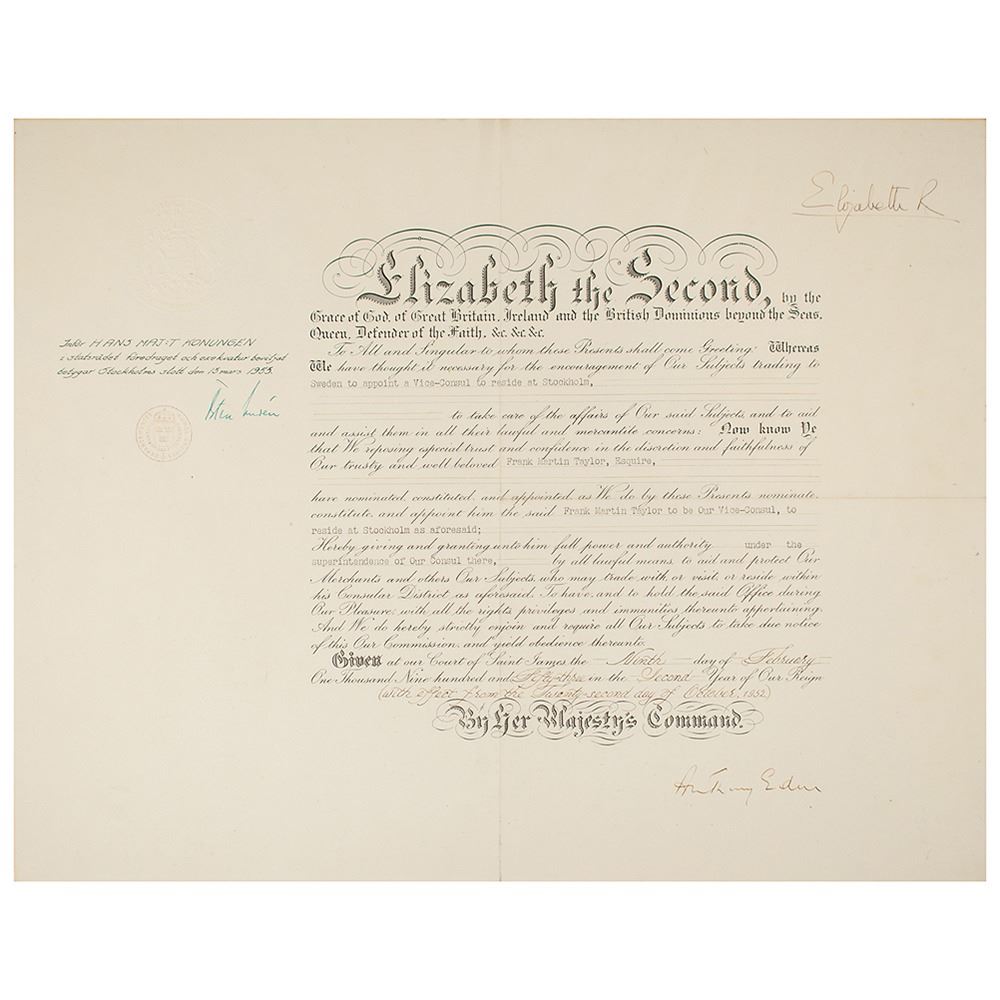 Elizabeth R
Elizabeth the Second, by the
Grace of God, of Great Britain, Ireland and the British Dominions beyond the Seas,
Queen, Defender of the Faith, &c. &c. &c.
To All and Singular to whom these Presents shall come Greeting: Whereas
We have thought it necessary for the encouragement of Our Subjects trading to
Sweden to appoint a Vice-Consul to reside at Stockholm,
to take care of the affairs of Our said Subjects, and to aid
and assist them in all their lawful and mercantile concerns: Now know Ye
that We reposing especial trust and confidence in the discretion and faithfulness of
Our trusty and well beloved Frank Martin Taylor, Esquire,
have nominated, constituted, and appointed, as We do by these Presents nominate,
constitute, and appoint him the said Frank Martin Taylor to be Our Vice-Consul, to
reside at Stockholm as aforesaid;
Hereby giving and granting unto him full power and authority under the
superintendence of Our Consul there, by all lawful means, to aid and protect Our
Merchants and others Our Subjects, who may trade with, or visit, or reside within
his Consular District as aforesaid. To have and to hold the said Office during
Our Pleasure, with all the rights, privileges and immunities thereunto appertaining.
And We do hereby strictly enjoin and require all Our Subjects to take due notice
of this Our Commission, and yield obedience thereunto.
Given at our Court of Saint James the Ninth day of February
One Thousand Nine hundred and Fifty-three in the Second Year of Our Reign
(with effect from the Twenty-second day of October, 1952)
By Her Majesty's Command.
Anthony Eden
Inför HANS MAJ:T KONUNGEN
i statsrådet föredraget och exekvatur beviljat
betygar Stockholms slott den 13 mars 1953.
Östen Undén